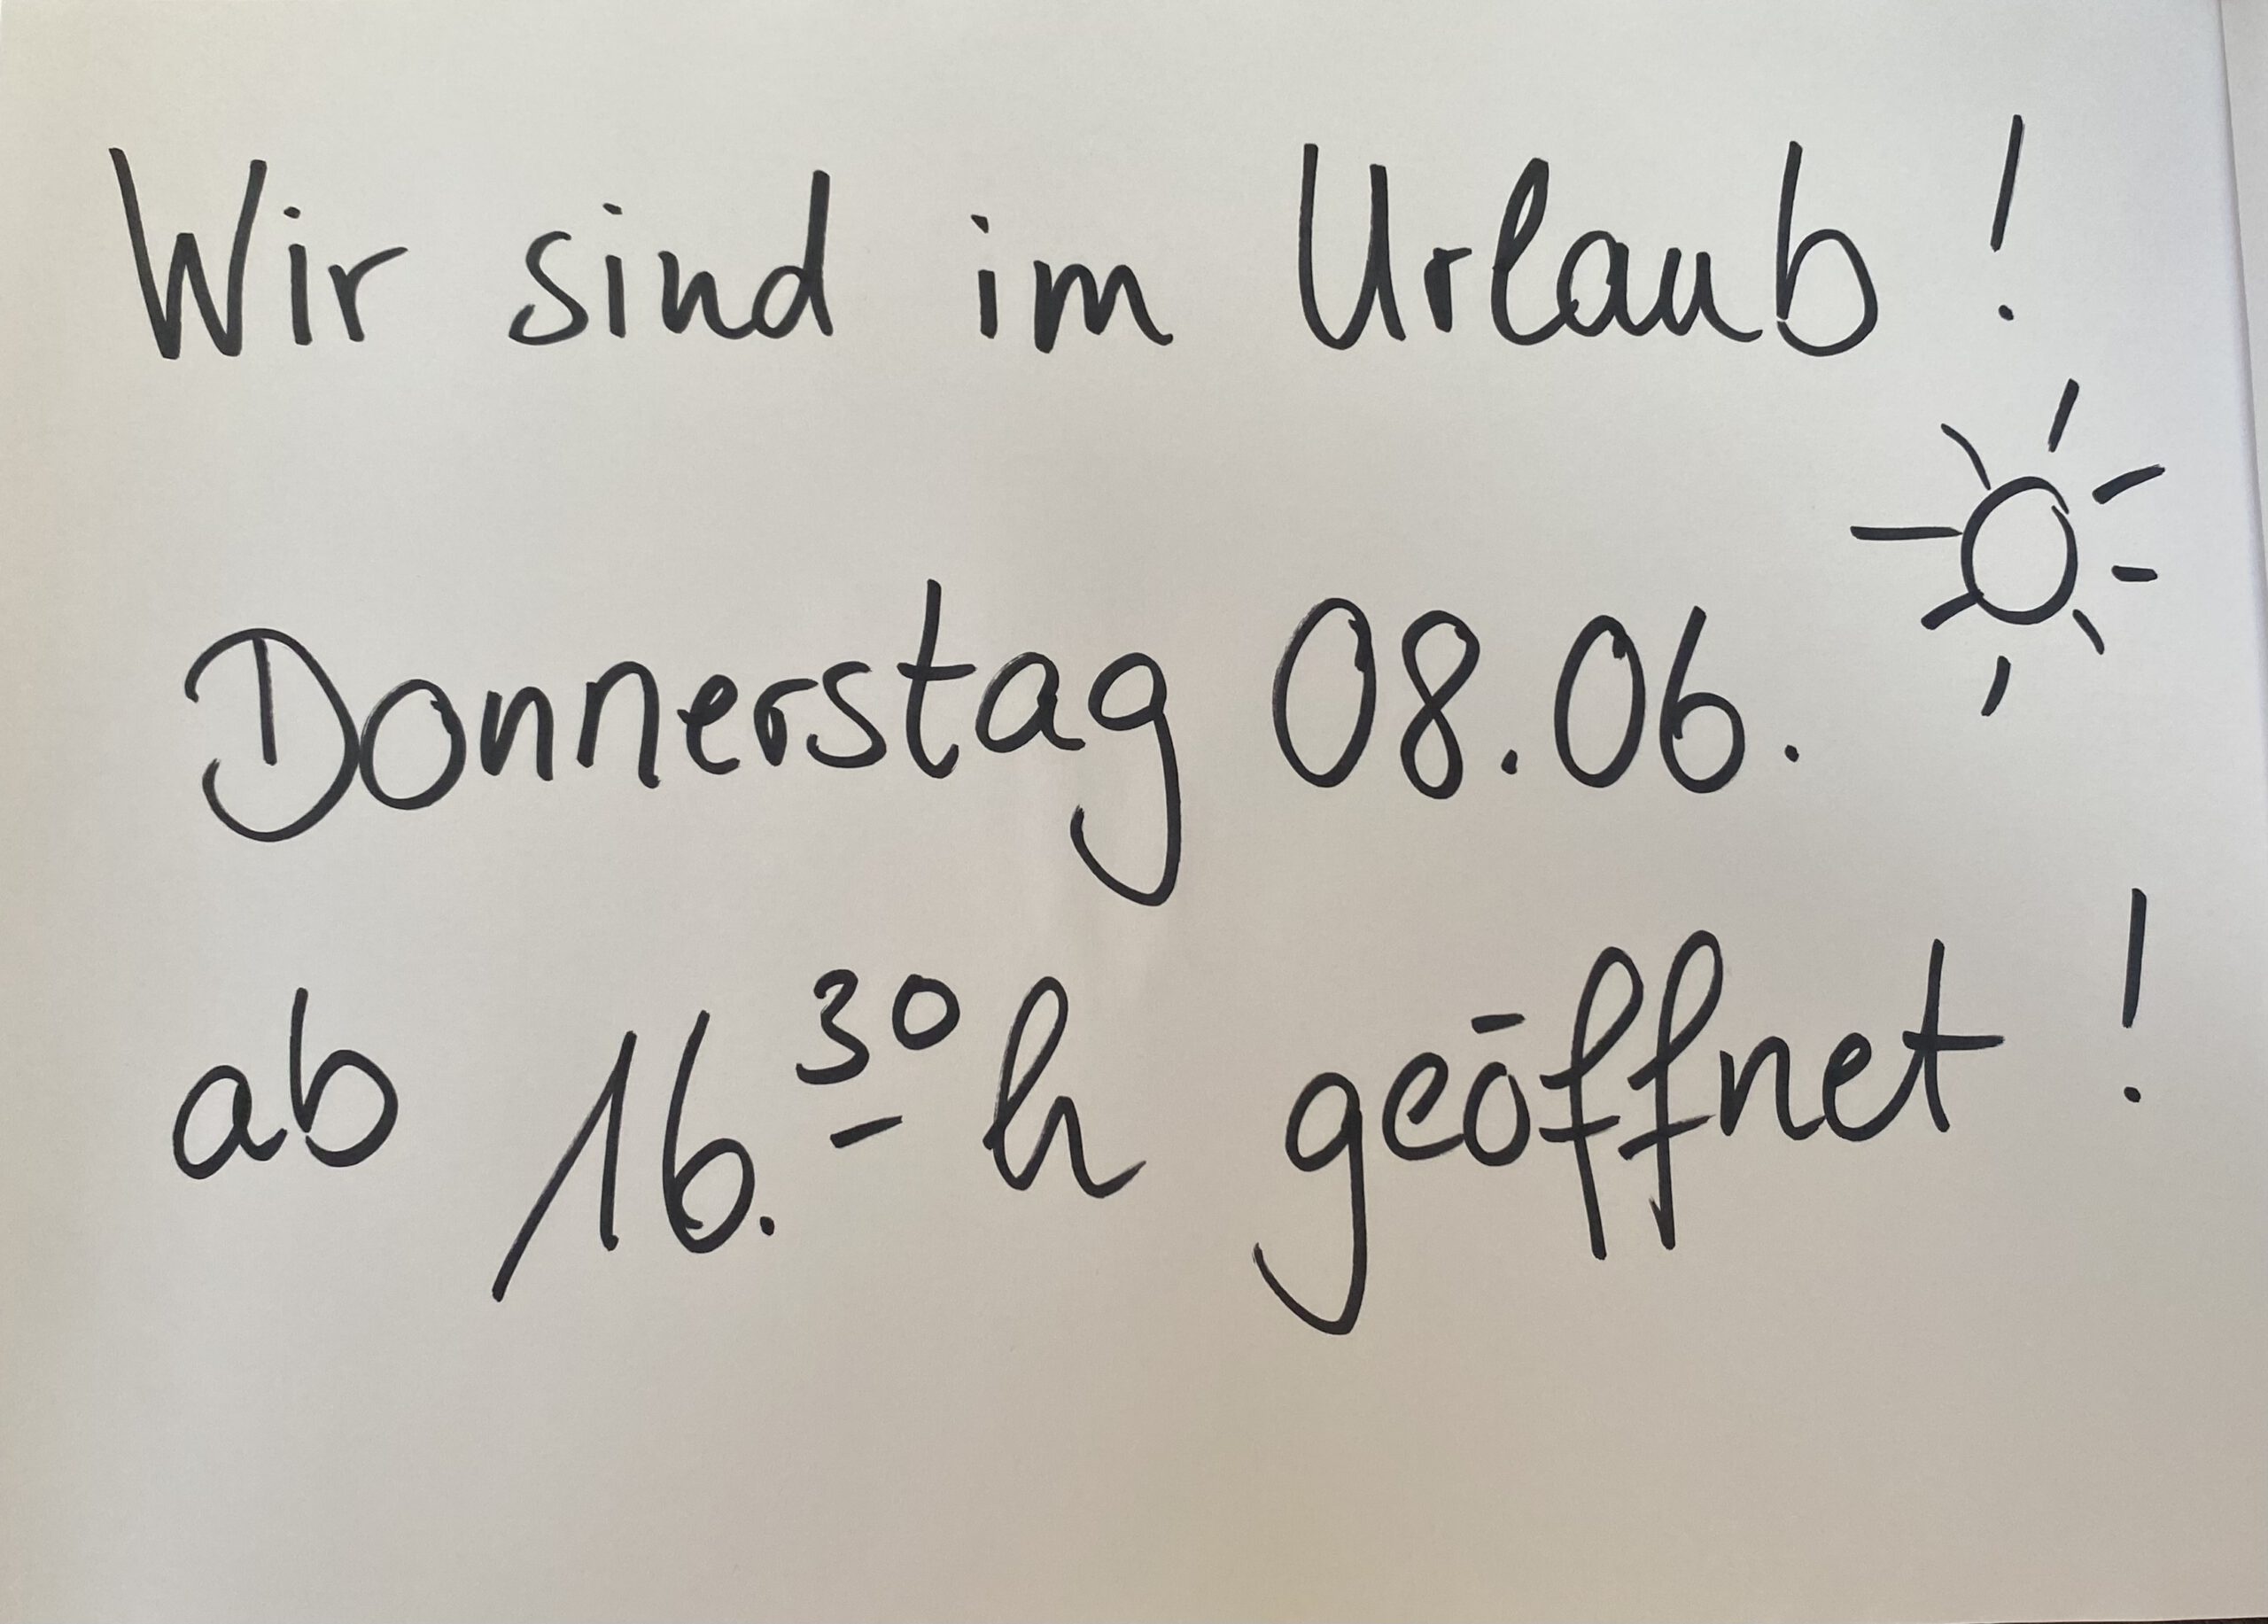 Wir sind im Urlaub !
Donnerstag 08.06.
ab 16.30 h geöffnet !